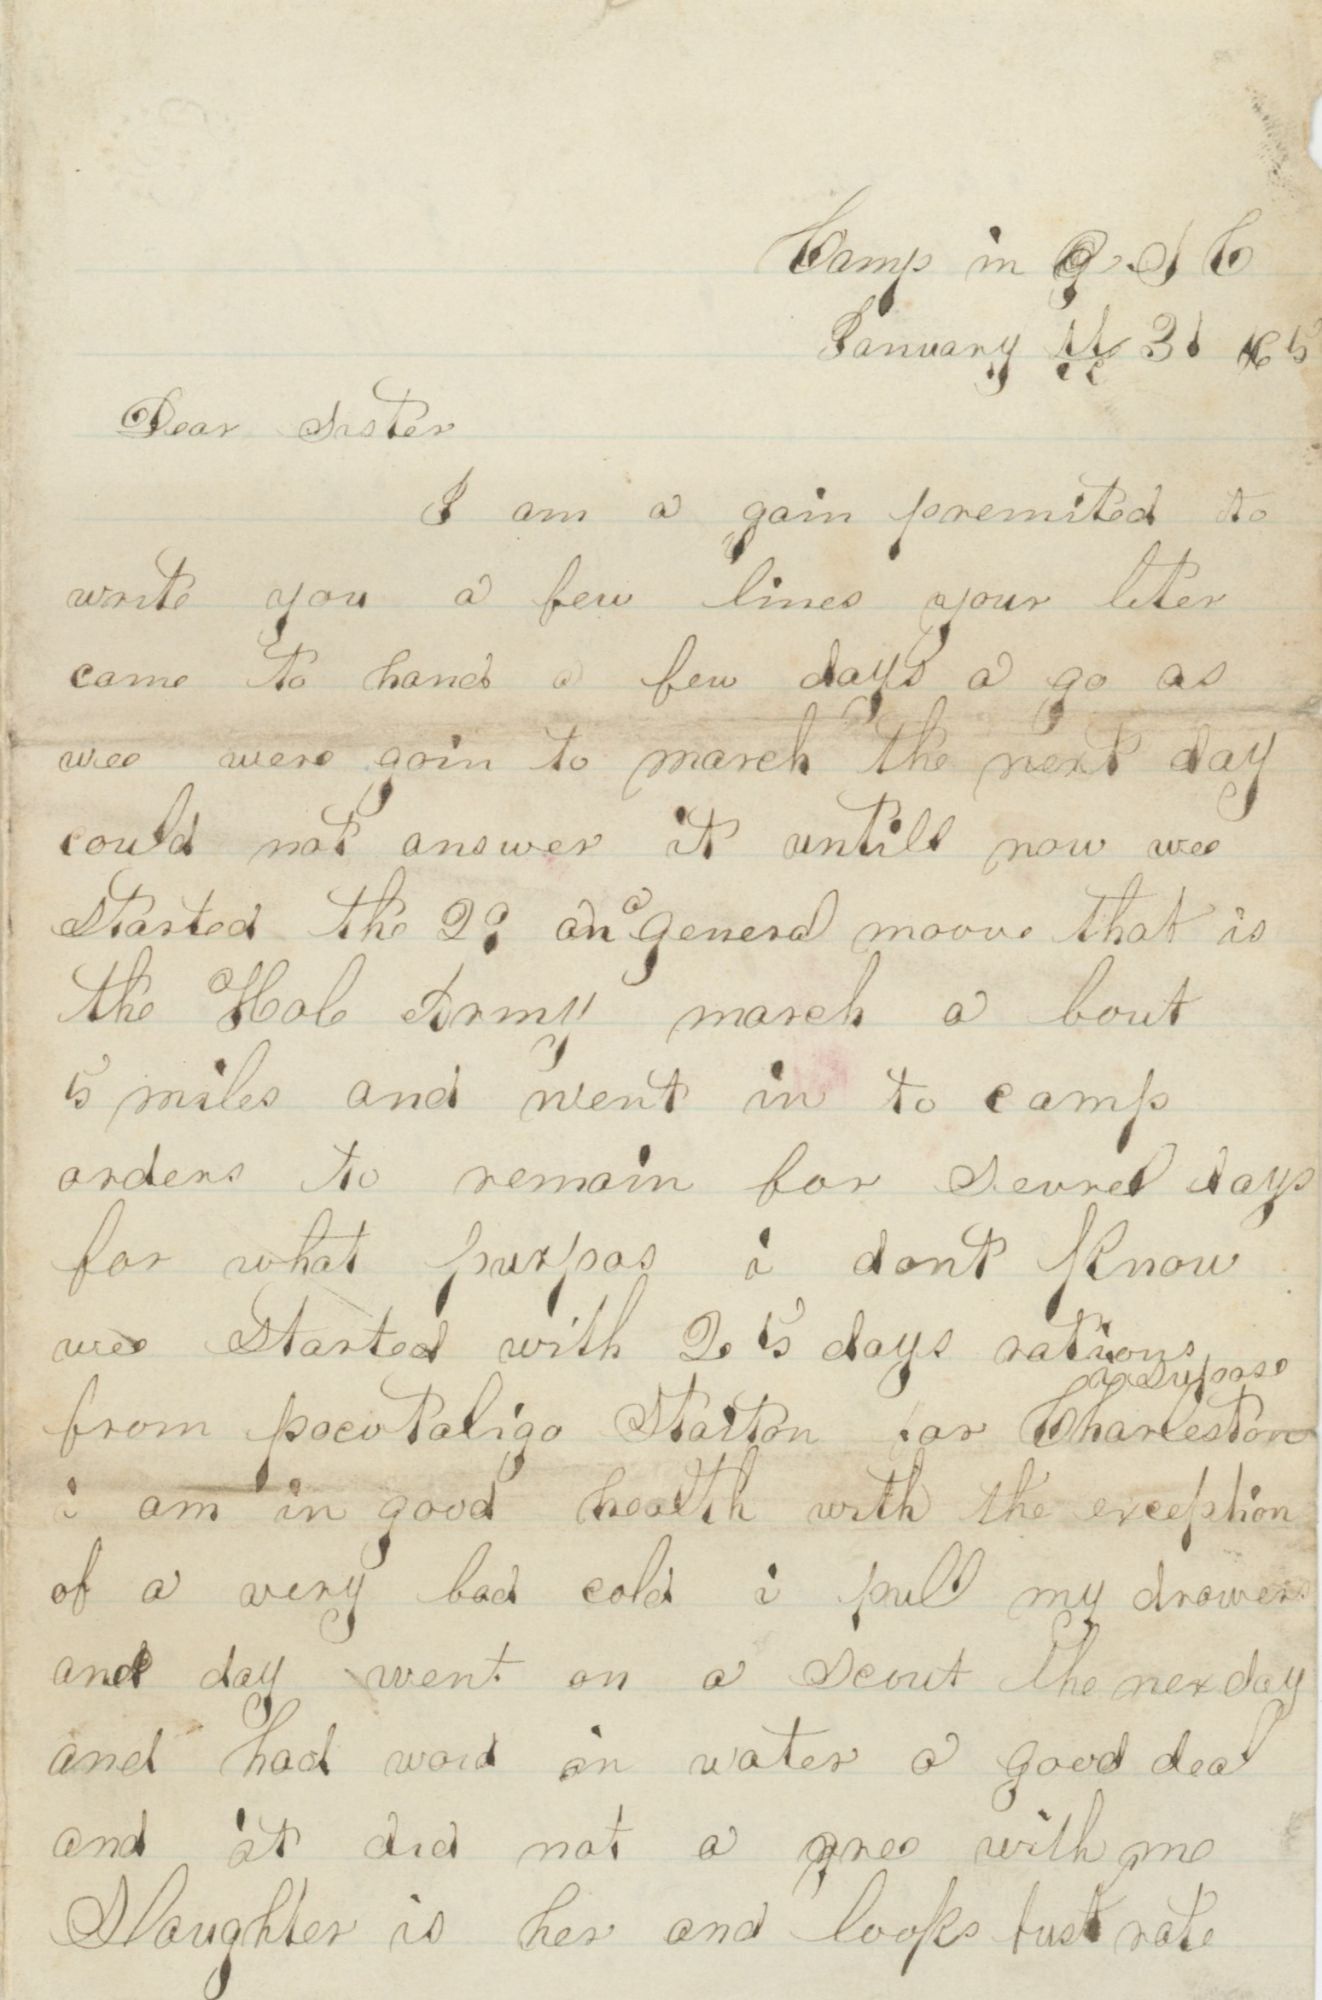 Camp in S C
January 31 65
Dear Sister
I am a gain premited to
write you a few lines your leter
came to hand a few days a go as
wee were goin to march the next day
could not answer it untill now wee
Started the 29 an a general moove that is
the Hole Army march a bout
5 miles and went in to camp
orders to remain for Sevrel days
for what purpos i dont Know
wee Started with 25 days rations
i Supose
from pocotaligo Staiton for Charleston
i am in good health with the exception
of a very bad cold i pull my drowers
and day went on a Scout the nex day
and had waid in water a good deal
and it did not a gree with me
Slaughter is her and looks fust rate